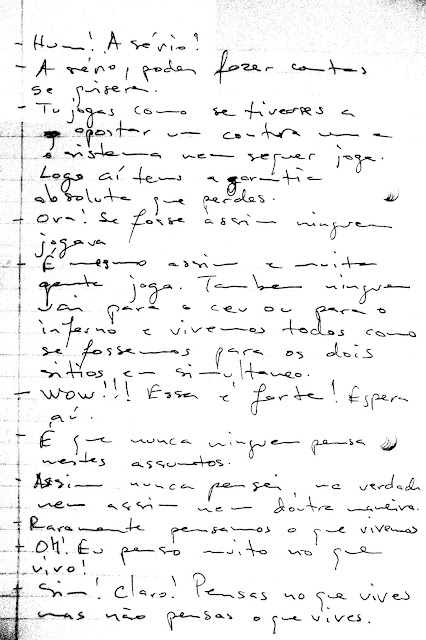 - Hum! A sério!
- A sério, podes fazer contas
se quiseres.
- Tu jogas como se tivesses a
apostar um contra um e
o sistema nem sequer joga.
Logo aí tens a garantia
absoluta que perdes.
- Ora! Se fosse assim ninguem
jogava
- É mesmo assim e muita
gente joga. Tambem ninguem
vai para o ceu ou para o
inferno e vivemos todos como
se fossemos para os dois
sitios em simultaneo.
- WOW!!! Essa é forte! Espera
aí.
- É que nunca ninguem pensa
nestes assuntos.
- Assim nunca pensei, na verdade
nem assim nem doutra maneira.
- Raramente pensamos o que vivemos
- OH! Eu penso muito no que
vivo!
- Sim! Claro! Pensas no que vives
mas não pensas o que vives.